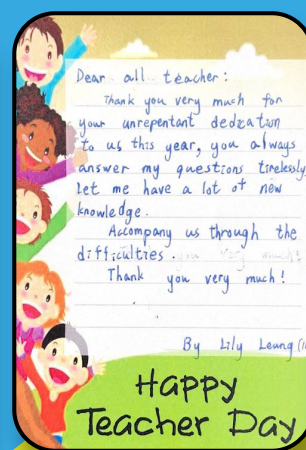 Dear all teacher:
Thank you very much for
your unrepentant dedzation
to us this year, you always
answer my questions tirelessly
Let me have a lot of new
knowledge.
Accompany us through the
difficulties.
Thank you very much!
By Lily Leung
Happy
Teacher Day